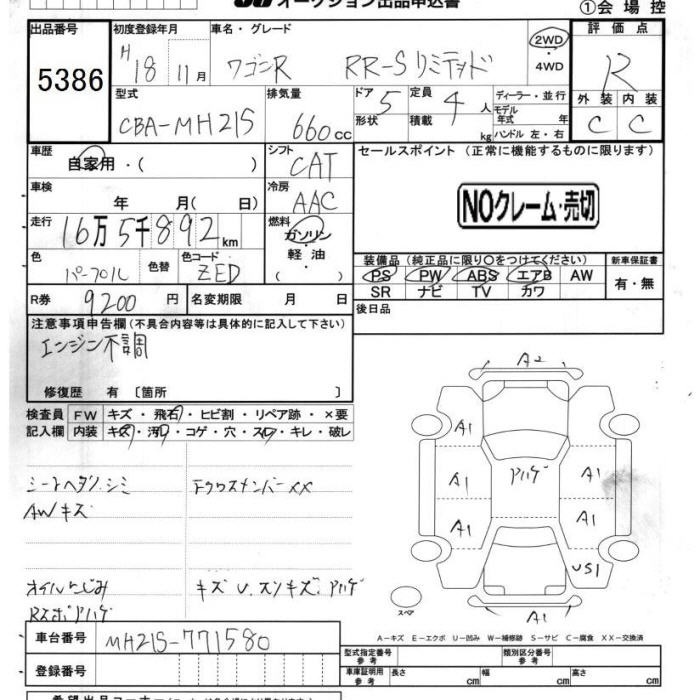 オークション出品申込書
①会場控
出品番号
5386
初度登録年月
H18 11月
車名・グレード
ワゴンR RR-Sリミテッド
2WD・4WD
評価点
R
型式
CBA-MH21S
排気量
660cc
ドア 5
形状
定員 4人
積載 kg
ディーラー・並行
モデル年式 年
ハンドル 左・右
外装 内装
C C
車歴
自家用・( )
シフト
CAT
セールスポイント (正常に機能するものに限ります)
NOクレーム・売切
車検
年 月( 日)
冷房
AAC
走行
16万5千892km
燃料
ガソリン・軽油・( )
色
パープル
色替
色コード
ZED
装備品 (純正品に限り○をつけてください)
新車保証書
PS PW ABS エアB AW
有・無
SR ナビ TV カワ
R券 9200円
名変期限 月 日
後日品
注意事項申告欄(不具合内容等は具体的に記入して下さい)
エンジン不調
修復歴 有 〔箇所 〕
検査員記入欄
FW キズ・飛石・ヒビ割・リペア跡・×要
内装 キズ・汚れ・コゲ・穴・スレ・キレ・破レ
シートヘタリ.シミ
AWキズ
オイルにじみ
RスポAハゲ
A2
A1
A1
A1
A1
A1
US1
A1
スペア
A-キズ E-エクボ U-凹み W-補修跡 S-サビ C-腐食 XX-交換済
車台番号
MH21S-771580
登録番号
型式指定番号 参考
類別区分番号 参考
車庫証明用 参考
長さ cm
幅 cm
高さ cm